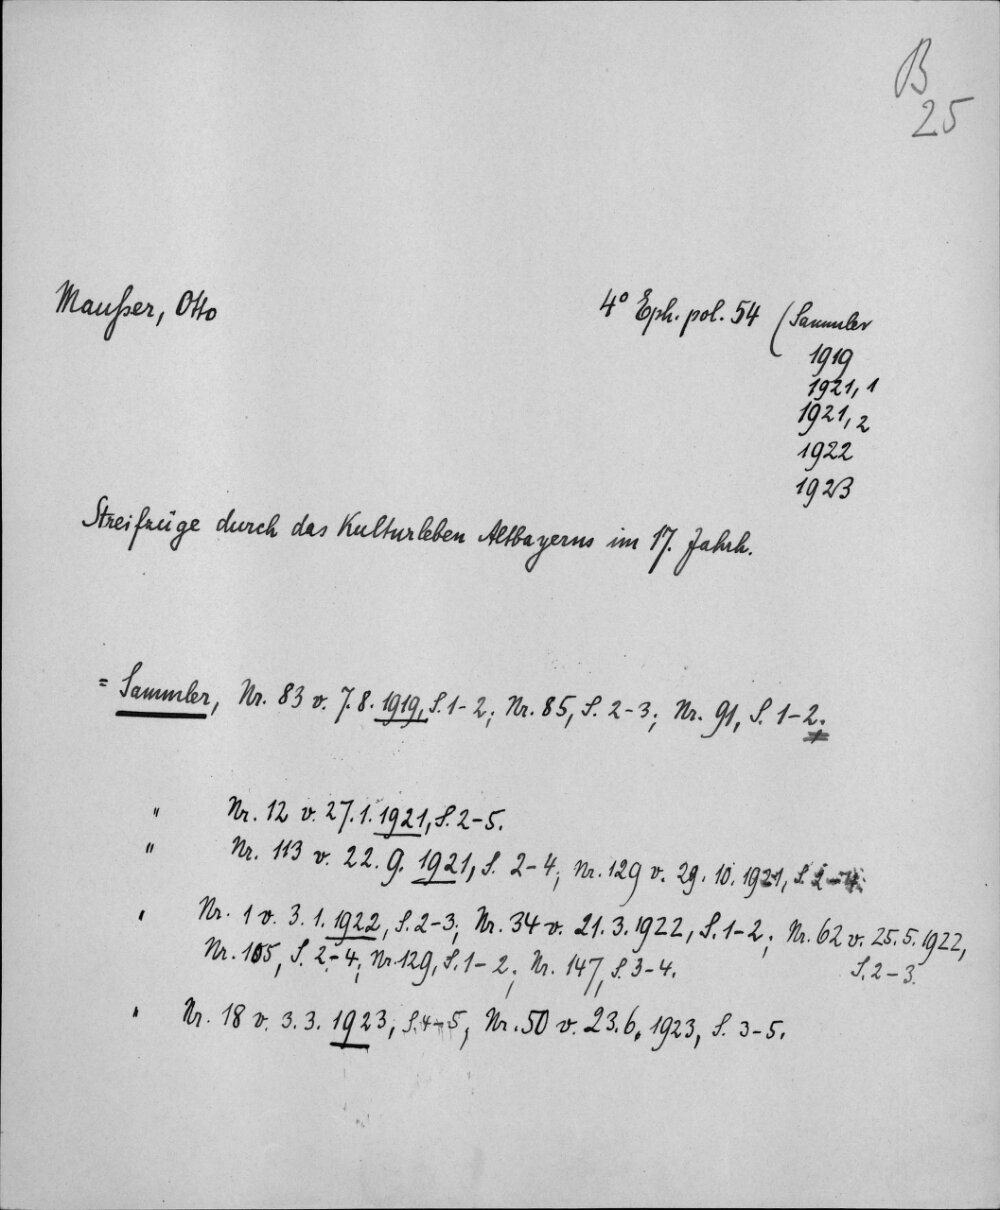 B
25
Maußer, Otto
4° Eph. pol. 54 (Sammler
1919
1921, 1
1921, 2
1922
1923
Streifzüge durch das Kulturleben Altbayerns im 17. Jahrh.
= Sammler, Nr. 83 v. 7. 8. 1919, S. 1-2; Nr. 85, S. 2-3; Nr. 91, S. 1-2.
" Nr. 12 v. 27. 1. 1921, S. 2-5.
" Nr. 113 v. 22. 9. 1921, S. 2-4; Nr. 129 v. 29. 10. 1921, S. 2-4.
" Nr. 1 v. 3. 1. 1922, S. 2-3; Nr. 34 v. 21. 3. 1922, S. 1-2; Nr. 62 v. 25. 5. 1922,
S. 2-3.
Nr. 105, S. 2-4; Nr. 129, S. 1-2; Nr. 147, S. 3-4.
" Nr. 18 v. 3. 3. 1923, S. 4-5, Nr. 50 v. 23. 6. 1923, S. 3-5.